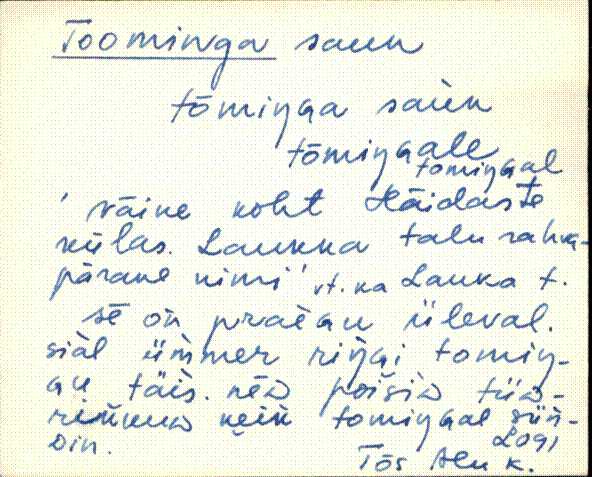 Toominga saun
tōmiŋga saùn
tōmiŋgale
tomiŋgal
' väike koht Häidaste
külas. Laukka talu rahva-
pärane nimi' vt. ka Lauka t.
sē on praegu üleval.
siäl ümmer riŋgi tomiŋ-
gu täis. nēD poisiD tüD-
rikkuD keik tomiŋgal sün-
Din.
Tōs Alu k.